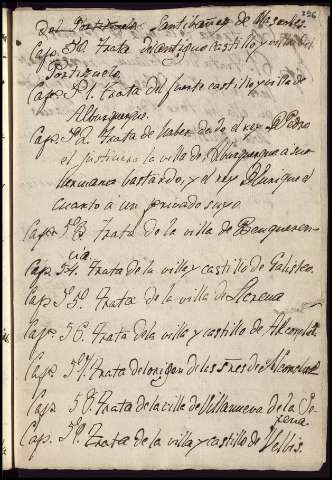 296
Del Portezuelo Santibañez de Mascoles
Cap. 50. Trata del antiguo castillo y villa del
Portezuelo
Cap. 51. trata del fuerte castillo y villa de
Alburquerque.
Cap. 52. trata de haber dado el rey D. Pedro
el justiciero la villa de Alburquerque a su
hermano bastardo, y el rey D. Enrique el
cuarto a un privado suyo.
Cap. 53 trata de la villa de Benqueren-
cia.
Cap. 54. trata de la villa y castillo de Galisteo.
Cap. 55. trata de la villa de Llerena
Cap. 56. trata de la villa y castillo de Alconchel
Cap. 57. trata del origen de los Sres de Alconchel
Cap. 58. trata de la villa de Villanueva de la Se-
rena.
Cap. 59. trata de la villa y castillo de Belbis.